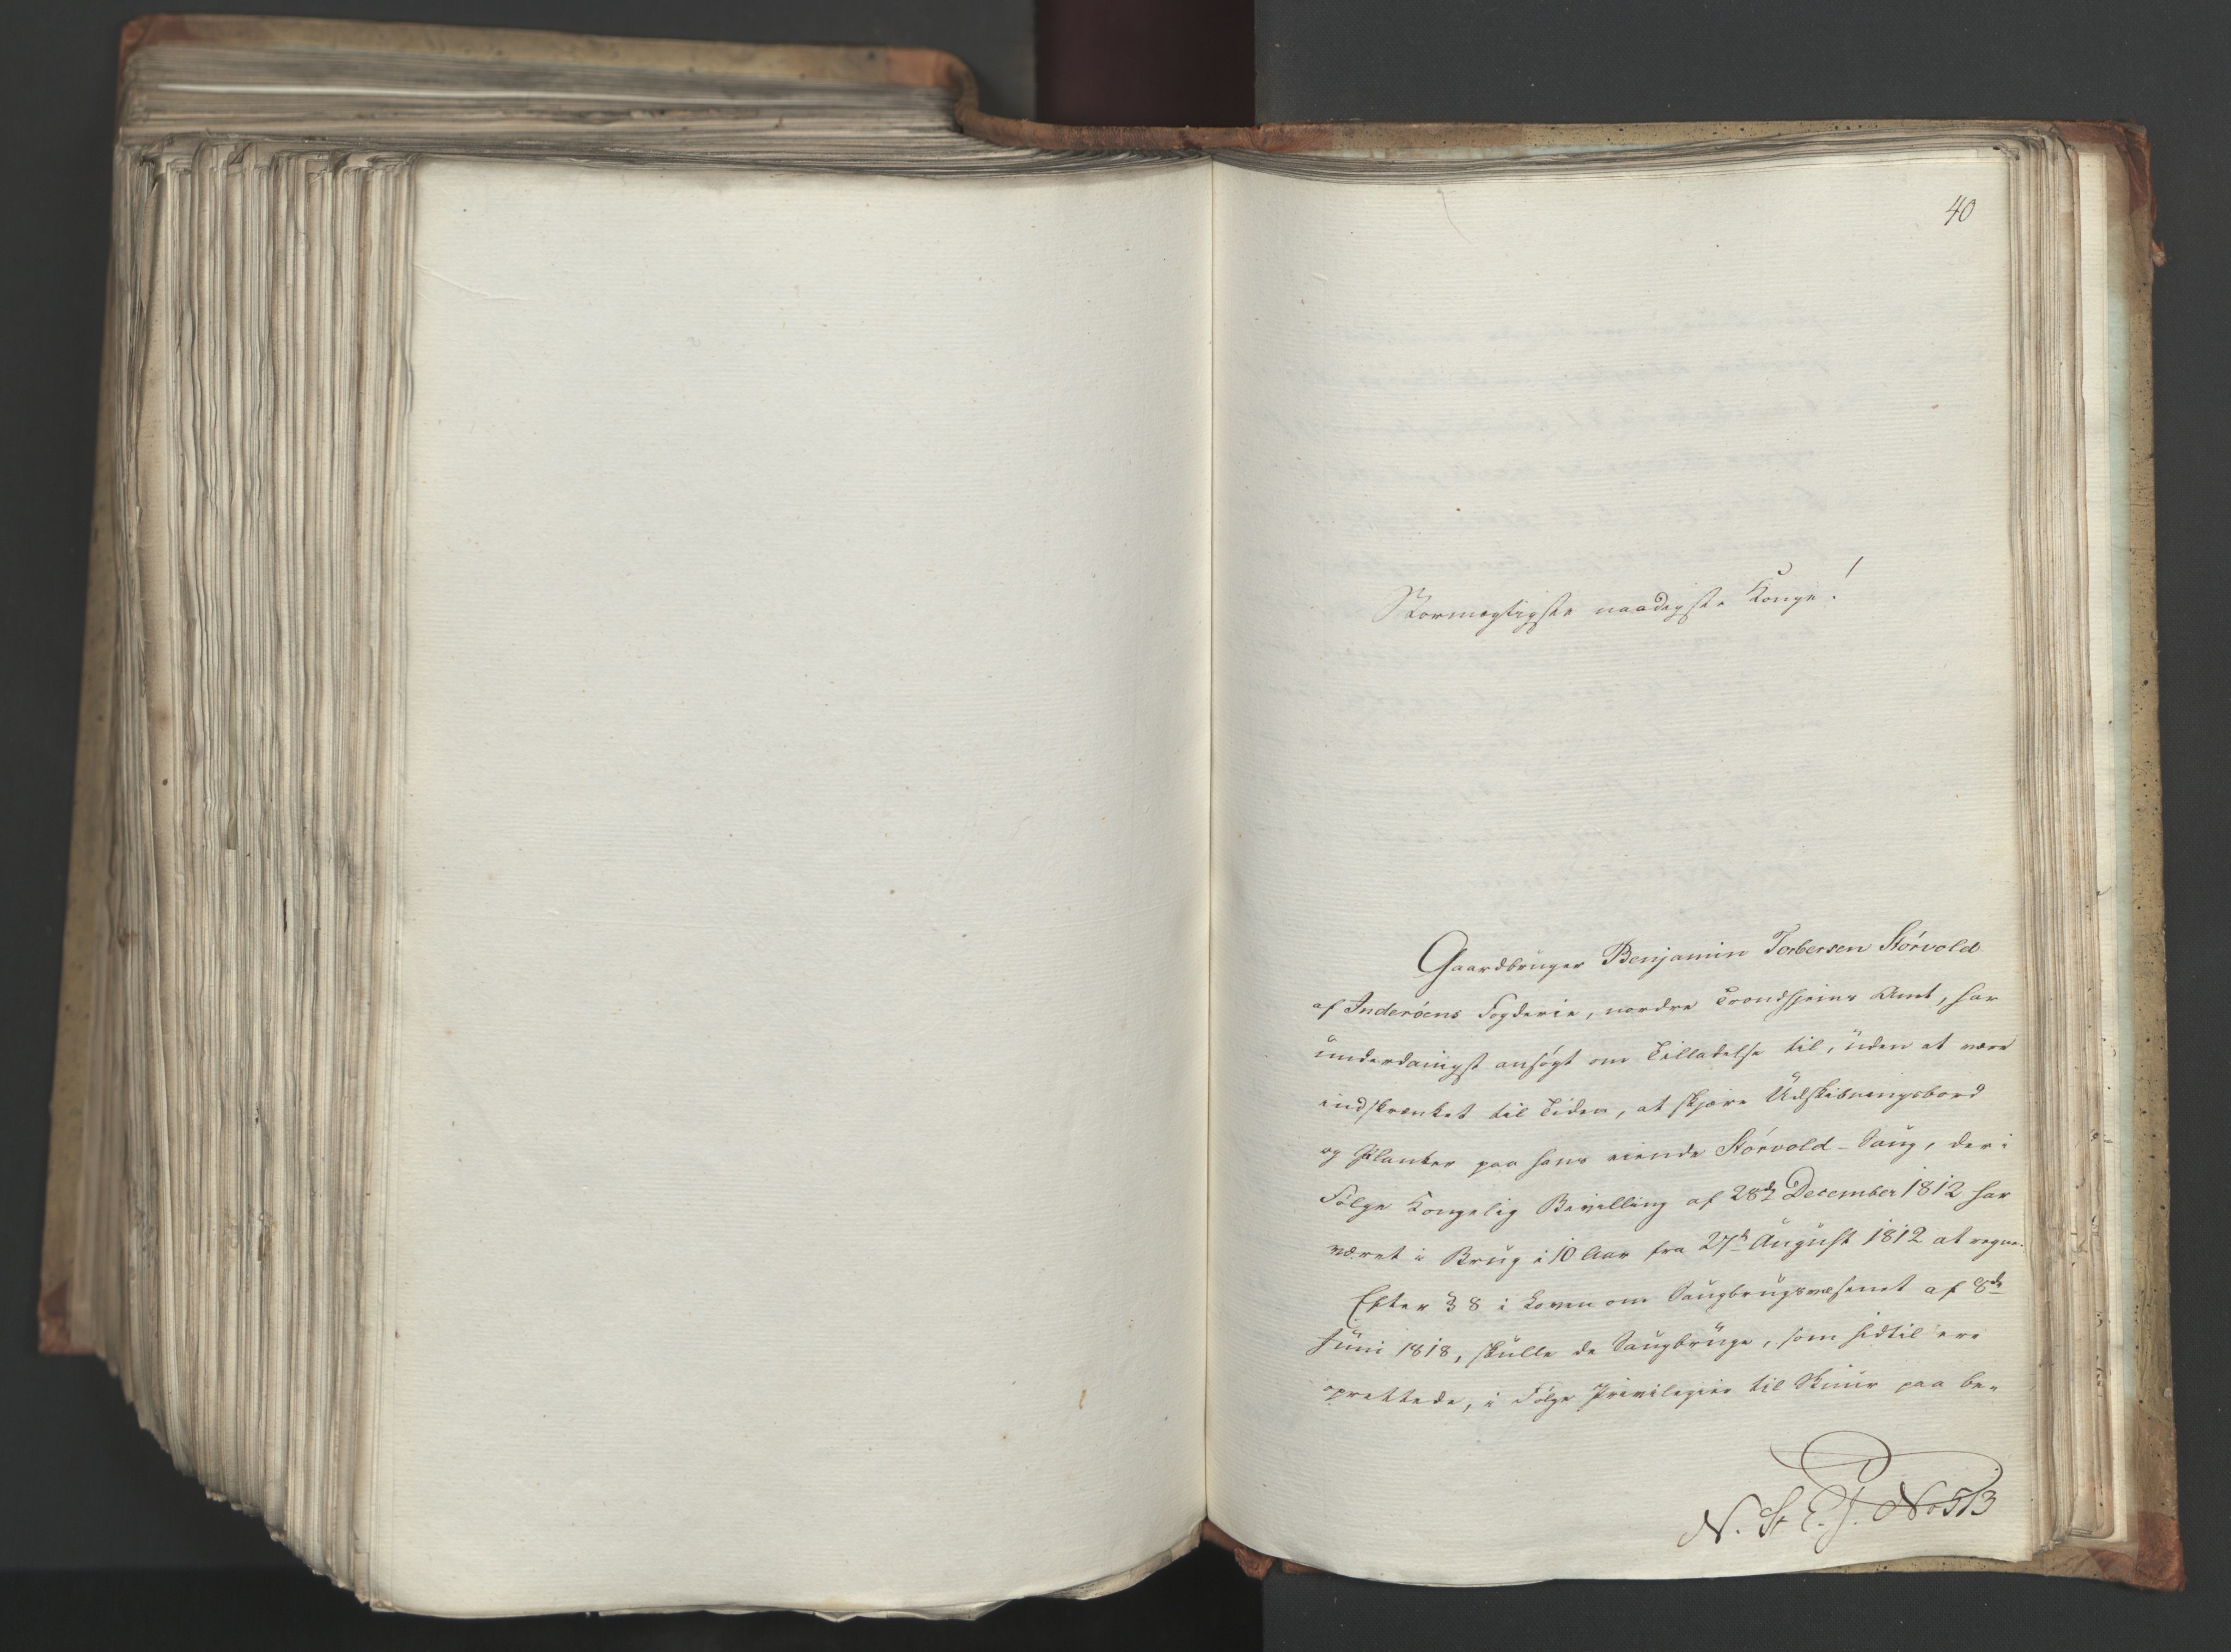 40
Stormægtigste naadigste Konge!
Gaardbruger Benjamin Torbersen Størvold
af Inderøens Fogderie, nordre Trondhjems Amt, har
underdanigst ansøgt om Tilladelse til, uden at være
indskrænket til Tiden, at skjære Udskibningsbord
og Planker paa hans eiende Størvold-Saug, der i
Følge Kongelig Bevilling af 28de December 1812 har
været i Brug i 10 Aar fra 27de August 1812 at regne.
Efter § 8 i Loven om Saugbrugsvæsenet af 8de
Juni 1818, skulle de Saugbruge, som hidtil ere
oprettede, i Følge Privilegier til Skuur paa be-
N. St. E. J. No 513